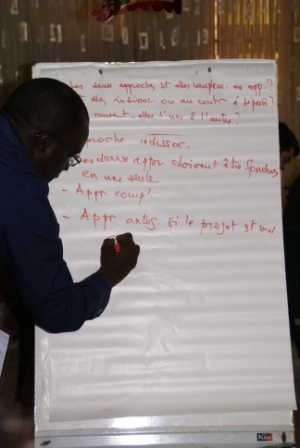 Les deux approches st elles complém. ou opp.?
elles indissoc ou au contr à séparer?
nuisent-elles l'une à l'autre?
Approche indissoc.
Les deux appr doivent être fondues
en une seule
- Appr compl!
- Appr antag si le projet st mal